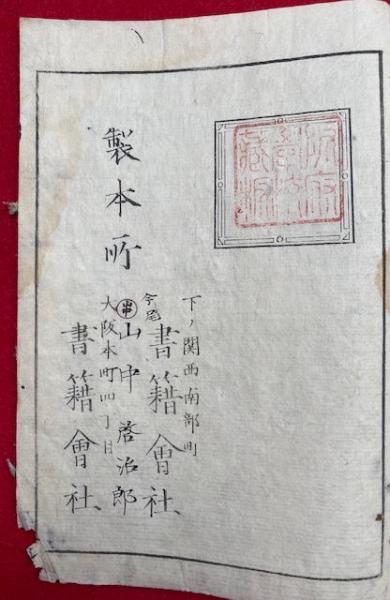 製本所
下ノ関西南部町
書籍會社
今尾
山中啓治郎
大阪本町四丁目
書籍會社